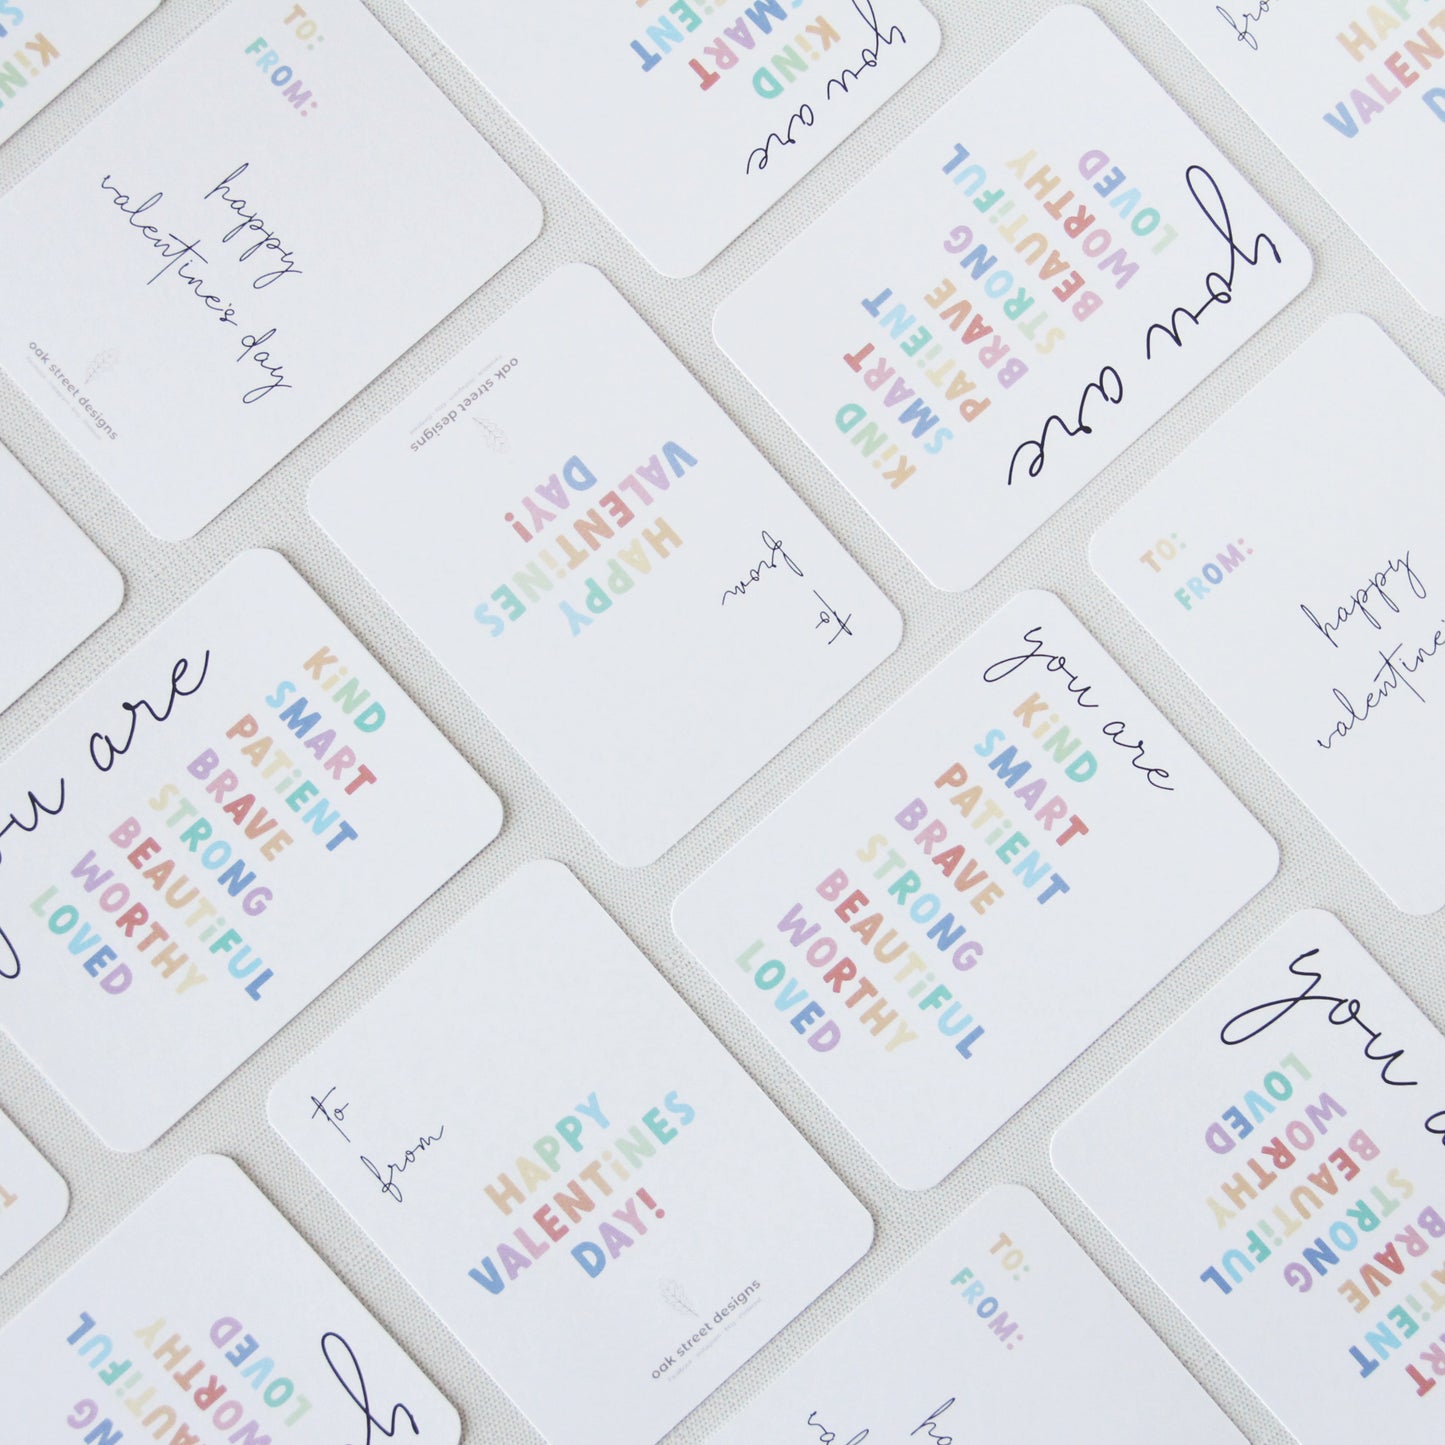 KiND
TO:
FROM:
happy
valentine's day
oak street designs
you are
KiND
SMART
from
HAPPY
you are
KiND
SMART
PATiENT
BRAVE
STRONG
BEAUTiFUL
WORTHY
LOVED
HAPPY
VALENTiNES
DAY!
to
from
oak street designs
TO:
FROM:
happy
are
KiND
SMART
PATiENT
BRAVE
STRONG
BEAUTiFUL
WORTHY
LOVED
you are
KiND
SMART
PATiENT
BRAVE
STRONG
BEAUTiFUL
WORTHY
LOVED
to
from
HAPPY
VALENTiNES
DAY!
oak street designs
you
BRAVE
STRONG
BEAUTiFUL
WORTHY
LOVED
TO:
FROM:
BEAUTiFUL
WORTHY
LOVED